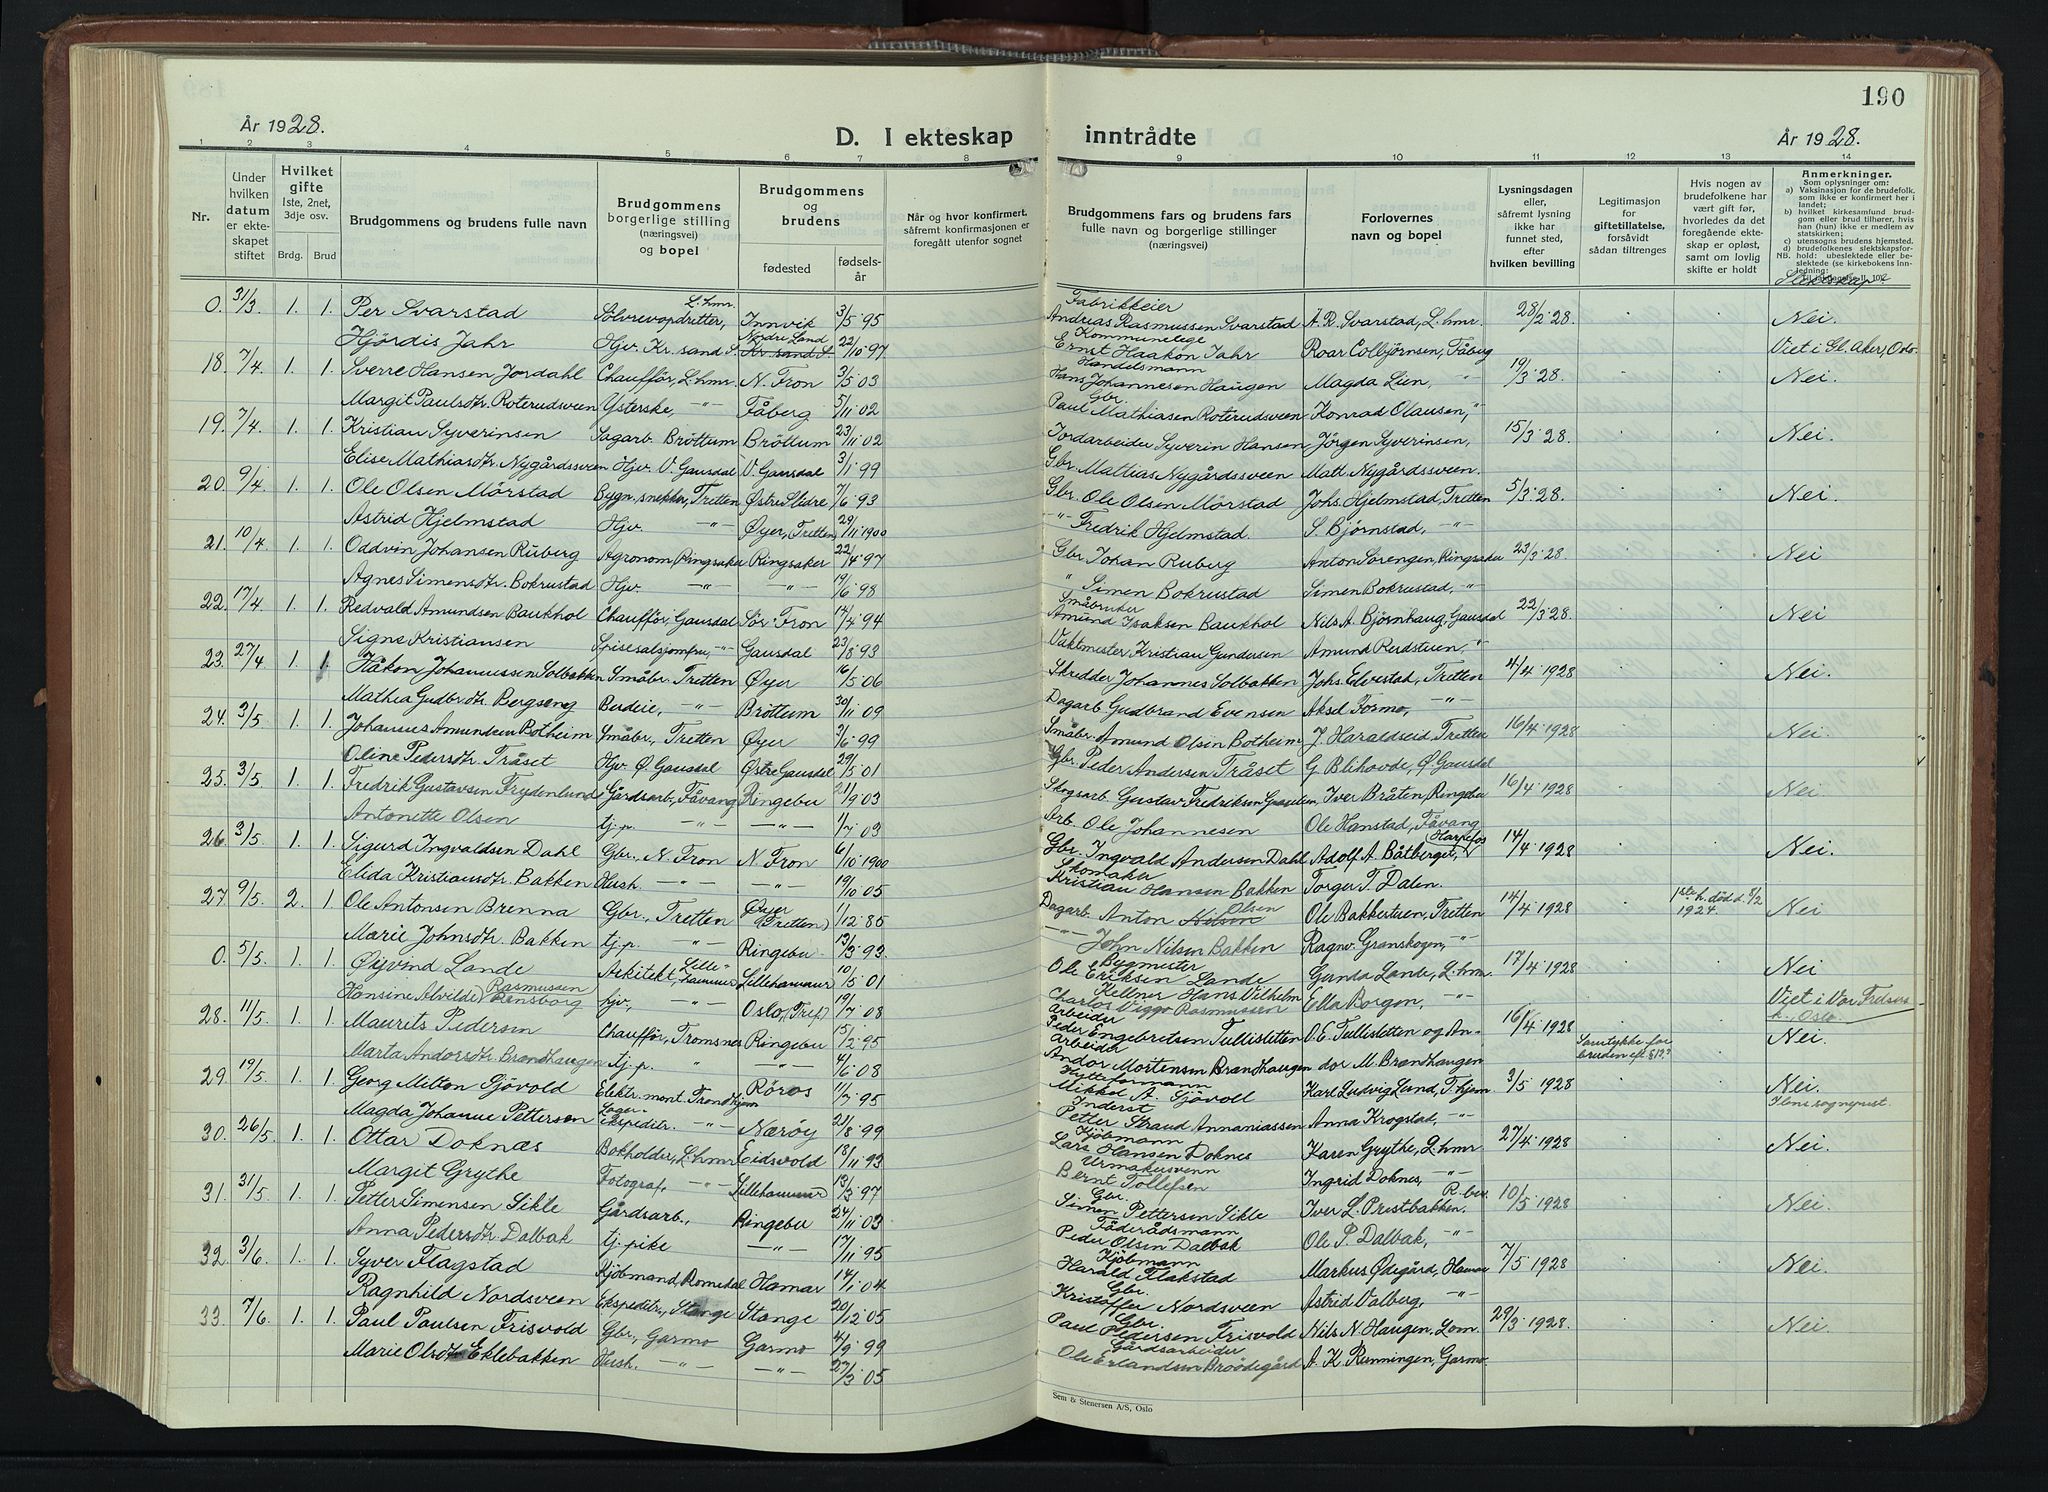 190
År 1928.
D. I ekteskap inntrådte
År 1928.
1 2 3 4 5 6 7 8 9 10 11 12 13 14
Nr.
Under hvilken datum er ekteskapet stiftet
Hvilket gifte 1ste, 2net, 3dje osv.
Brdg. Brud
Brudgommens og brudens fulle navn
Brudgommens borgerlige stilling (næringsvei) og bopel
Brudgommens og brudens
fødested
fødselsår
Når og hvor konfirmert, såfremt konfirmasjonen er foregått utenfor sognet
Brudgommens fars og brudens fars fulle navn og borgerlige stillinger (næringsvei)
Forlovernes navn og bopel
Lysningsdagen eller, såfremt lysning ikke har funnet sted, efter hvilken bevilling
Legitimasjon for giftetillatelse, forsåvidt sådan tiltrenges
Hvis nogen av brudefolkene har vært gift før, hvorledes da det foregående ekteskap er opløst, samt om lovlig skifte er holdt
Anmerkninger.
Som oplysninger om:
a) Vaksinasjon for de brudefolk, som ikke er konfirmert her i landet;
b) hvilket kirkesamfund brudgom eller brud tilhører, hvis han (hun) ikke er medlem av statskirken;
c) utensogns brudens hjemsted.
d) brudefolkenes slektskapsforhold: ubeslektede eller beslektede (se kirkebokens Innledning:
Slektskap
0. 31/3 1. 1. Per Svarstad Sölvrevopdretter, L.hmr Innvik 3/5 95 Fabrikkeier Andreas Rasmussen Svarstad A. R. Svarstad, L.hmr. 28/2 28. Nei.
Hjördis Jahr Hjv. Kr.sand S. Nordre Land Kr.sand S 22/10 97 Kommunelege Ernst Haakon Jahr Roar Colbjørnsen, Fåberg Viet i Gl. Aker, Oslo.
18. 7/4 1. 1. Sverre Hansen Jordahl Chaufför, L.hmr. N. Fron 3/5 03 Handelsmann Hans Johannesen Haugen Magda Lien, -"- 19/3 28. Nei.
Margit Paulsdtr. Roterudsveen Ysterske, -"- Fåberg 5/11 02 Gbr. Paul Mathiasen Roterudsveen Konrad Olausen, "
19. 7/4. 1. 1. Kristian Syverinsen Sagarb. Bröttum Bröttum 23/11 02 Jordarbeider Syverin Hansen Jörgen Syverinsen, 15/3 28. Nei.
Elise Mathiasdtr. Nygårdssveen Hjv. V. Gausdal V. Gausdal 3/1 99 Gbr. Mattias Nygårdssveen Matt. Nygårdssveen.
20. 9/4 1. 1. Ole Olsen Mörstad Bygn.snekker, Tretten Østre Slidre 7/6 93 Gbr. Ole Olsen Mörstad Johs. Hjelmstad, Tretten 5/3 28. Nei.
Astrid Hjelmstad Hjv. -"- Øyer, Tretten 29/11 1900 -"- Fredrik Hjelmstad. S. Björnstad, -"-
21. 10/4 1. 1. Oddvin Johansen Ruberg Agronom, Ringsaker Ringsaker 22/4 97 Gbr. Johan Ruberg Anton Sörengen, Ringsaker 23/3 28. Nei
Agnes Simensdtr. Bokrustad Hjv. -"- -"- 14/6 98 " Simen Bokrustad Simen Bokrustad, -"-
22. 17/4 1. 1. Redvald Amundsen Baukhol Chaufför, Gausdal Sör Fron 17/4 94 Småbruker Amund Isaksen Baukhol Nils A. Björnhaug, Gausdal 22/3 28. Nei
Signe Kristiansen Spisesalsjomfru, -"- Gausdal 23/8 93 Vaktmester Kristian Gundersen Amund Rerdstuen, "
23. 27/4 1. 1 Håkon Johannessen Solbakken Småbr. Tretten Øyer 16/5 06 Skredder Johannes Solbakken Johs. Elvestad, Tretten 4/4 1928 Nei.
Mathia Gudbr.dtr. Bergseng Budeie, -"- Bröttum 30/11 09 Dagarb. Gudbrand Evensen Aksel Formo, -"-
24. 3/5 1. 1. Johannes Amundsen Botheim Småbr., Tretten Øyer 3/6 99 Småbr. Amund Olsen Botheim J. Haraldseid Tretten 16/4 1928 Nei.
Oline Pedersdtr. Tråset Hjv. Ø. Gausdal Østre Gausdal 29/5 01 Gbr. Peder Andersen Tråset G. Blihovde, Ø. Gausdal
25. 3/5 1. 1. Fredrik Gustavsen Frydenlund Gårdsarb., Fåvang Ringebu 21/9 03 Skogsarb. Gustav Fredriksen Iver Bråten, Ringebu 16/4 1928 Nei.
Antonette Olsen tj.p. -"- -"- 1/7 03 Arb. Ole Johannesen Ole Hanstad, Fåvang
26. 3/5 1. 1. Sigurd Ingvaldsen Dahl Gbr., N. Fron N. Fron 6/10 1900 Gbr. Ingvald Andersen Dahl Adolf A. Båtberget, Harpefos 14/4 1928 Nei.
Elida Kristiansdtr. Bakken Hush. -"- -"- 19/10 05 Skomaker Kristian Hansen Bakken Torger T. Dalen.
27. 9/5. 2. 1. Ole Antonsen Brenna Gbr., Tretten Øyer (Tretten) 1/12 85 Dagarb. Anton Nilsen Olsen Ole Bakketuen, Tretten 14/4 1928 1ste h. död d. 8/2 1924. Nei
Marie Johnsdtr. Bakken tj.p. -"- Ringebu 13/3 93 -"- John Nilsen Bakken Ragnv. Granskogen, -"-
0. 5/5. 1. 1. Øyvind Lande Arkitekt, Lillehammer Lillehammer 10/5 01 Bygmester Ole Eriksen Lande Gunda Lande, L.hmr. 17/4 1928 Nei
Hansine Alvilde Rasmussen Rensborg hjv. -"- Oslo, (Tref.) 19/7 08 Kellner Hans Vilhelm Charlos Viggo Rasmussen Ella Borgen, -"- Viet i Vor Frelsers k., Oslo.
28. 11/5. 1. 1. Maurits Pedersen Chaufför, Tromsnes Ringebu 15/2 95 Arbeider Peder Engebretsen Tullisletten O. E. Tullisletten og An- 16/4 1928 Samtykke for bruden eft. §12? Nei.
Marta Andorsdtr. Brændhaugen tj.p. " -"- 4/6 08 Arbeider Andor Mortensen Brændhaugen dor M. Brændhaugen
29. 19/5. 1. 1. Georg Milton Sjövold Elektr.mont. Trondhjem Röros 11/7 95 Hytteformann Mikal A. Sjövoll Karl Ludvig Lund, T.hjem 3/5 1928 Nei.
Magda Johanne Pettersen Lagerekspeditr. -"- Nærøy 21/8 99 Inderst Petter Straud Annaniassen Anna Krogstad, -"- Ilens sogneprest.
30. 26/5. 1. 1. Ottar Doknæs Bokholder, L.hmr. Eidsvold 18/11 93 Kjöbmann Lars Hansen Doknes Karen Grythe, L.hmr. 27/4 1928 Nei.
Margit Grythe Fotograf, -"- Lillehammer 13/3 97 Urmakersvenn Bernt Tollefsen Ingrid Doknes, -"-
31. 31/5. 1. 1. Petter Simensen Sikle Gårdsarb., Ringebu 24/11 03 Gbr. Simen Pettersen Sikle Iver L. Prestbakken. R.bu. 10/5 1928 Nei.
Anna Pedersdtr. Dalbak tj.pike -"- 17/11 95 Föderådsmann Peder Olsen Dalbak Ole P. Dalbak, -"-
32. 3/6 1. 1. Syver Flagstad Kjöbmand Romedal Hamar 14/1 04 Kjöbmann Harald Flakstad Markus Ødegård, Hamar 7/5 1928 Nei.
Ragnhild Nordsveen Ekspeditr., Stange Stange 20/12 05 Gbr. Kristoffer Nordsveen Astrid Valberg, -"-
33. 7/6. 1. 1. Paul Paulsen Frisvold Gbr., Garmo Garmo 4/9 99 Gbr. Paul Pedersen Frisvold Nils N. Haugen, Lom. 29/3 1928. Nei.
Marie Olsdtr Eklebakken Hush. -"- -"- 27/3 05 Gårdsarbeider Ole Erlandsen A. K. Rønningen, Garmo.
Sem & Stenersen A/S, Oslo